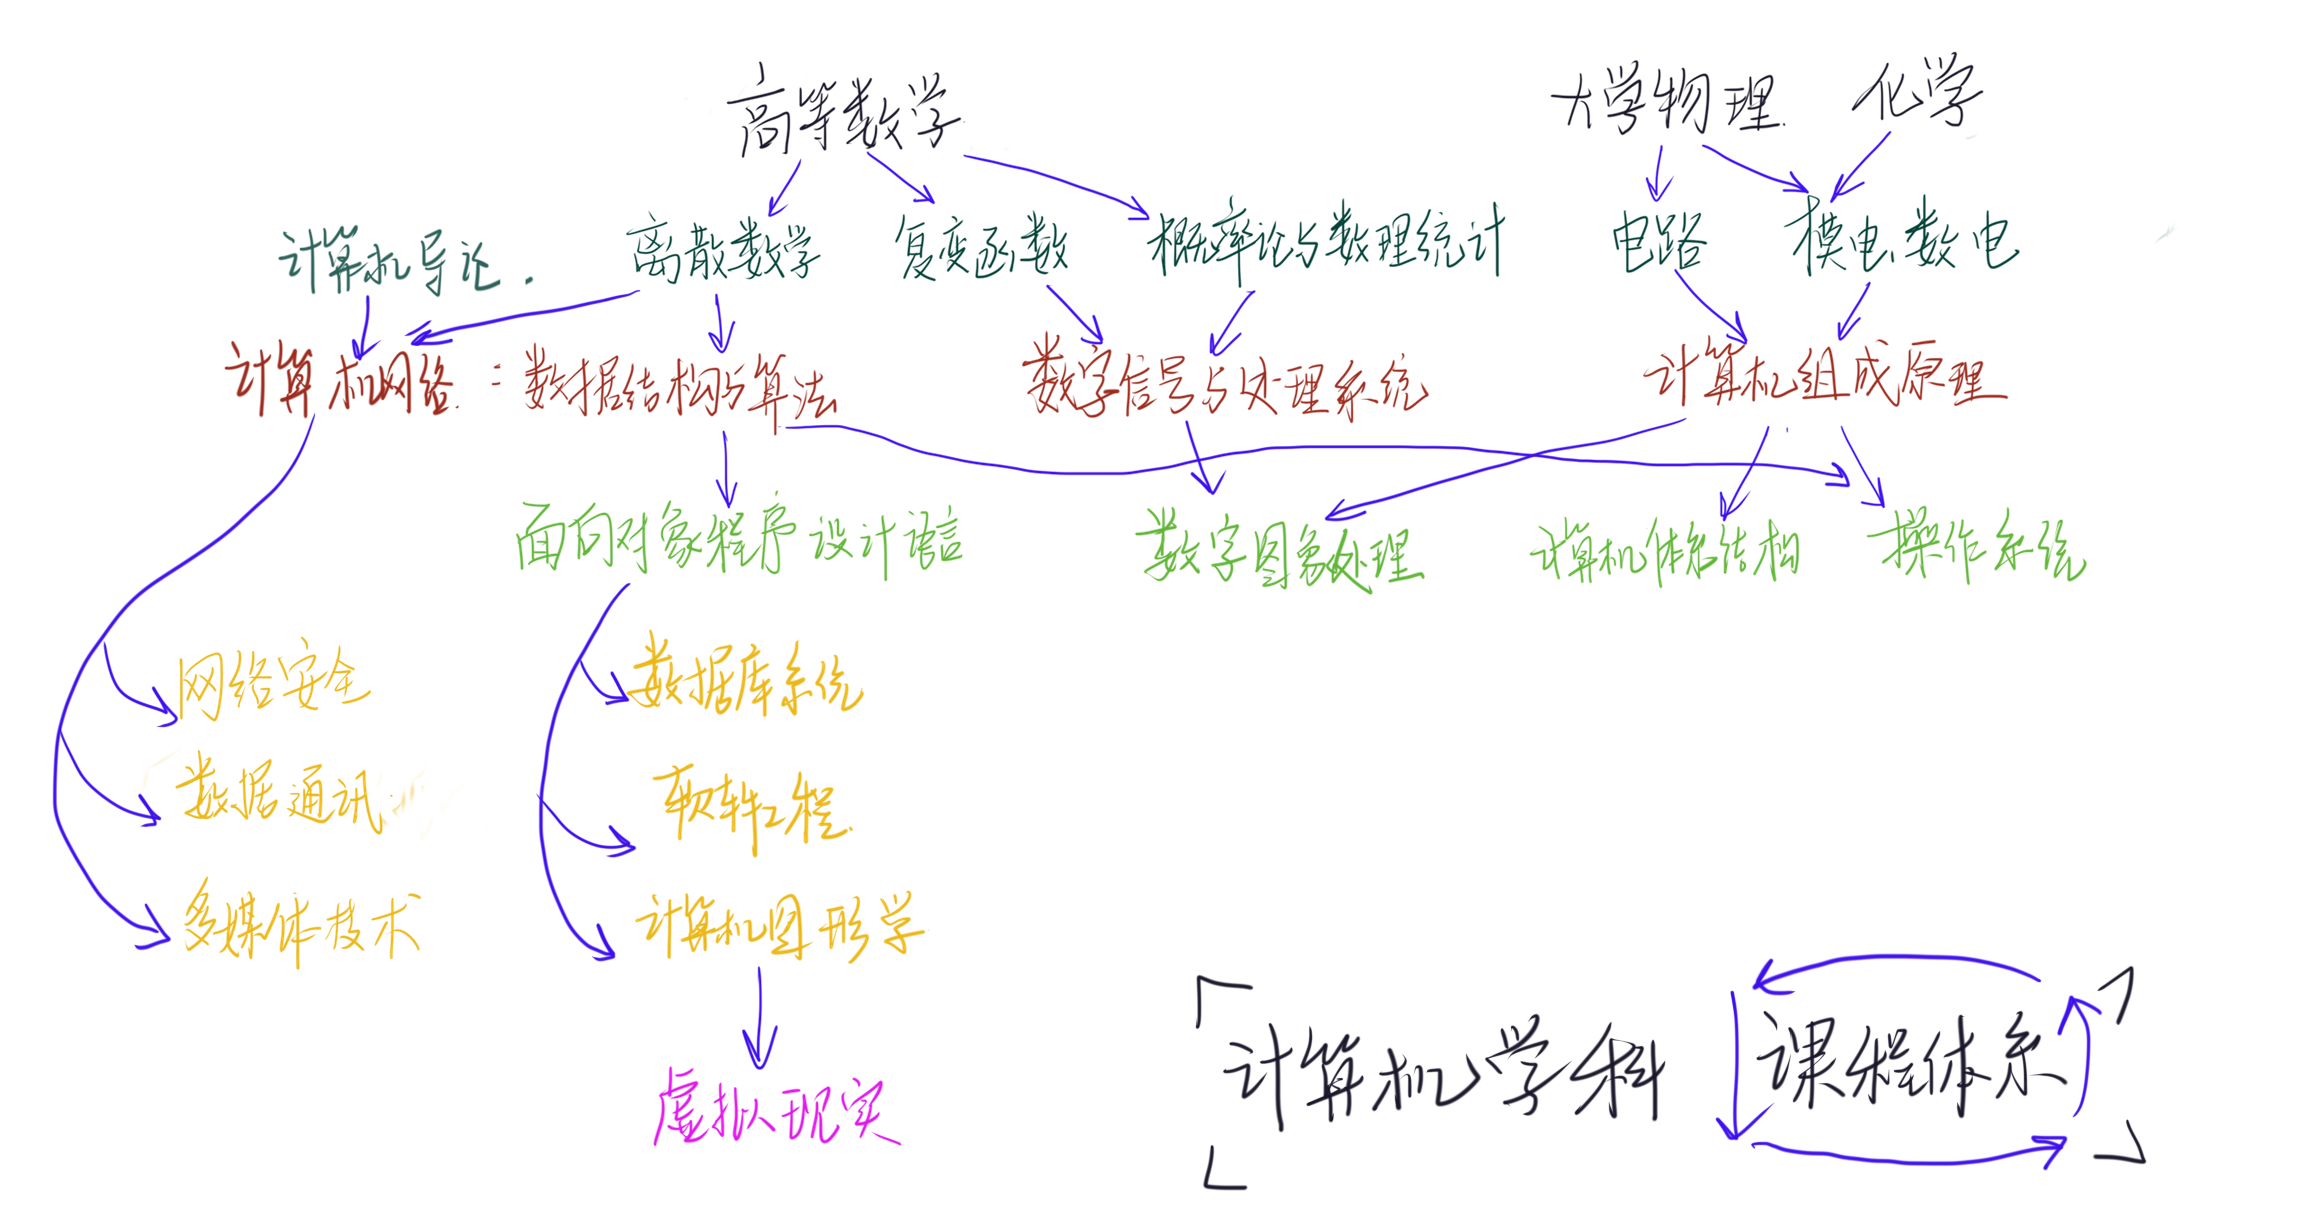 高等数学
大学物理
化学
计算机导论.
离散数学
复变函数
概率论与数理统计
电路
模电、数电
计算机网络:
数据结构与算法
数字信号与处理系统
计算机组成原理
面向对象程序设计语言
数字图象处理
计算机体系结构
操作系统
网络安全
数据库系统
数据通讯
软件工程.
多媒体技术
计算机图形学
计算机学科
课程体系
虚拟现实